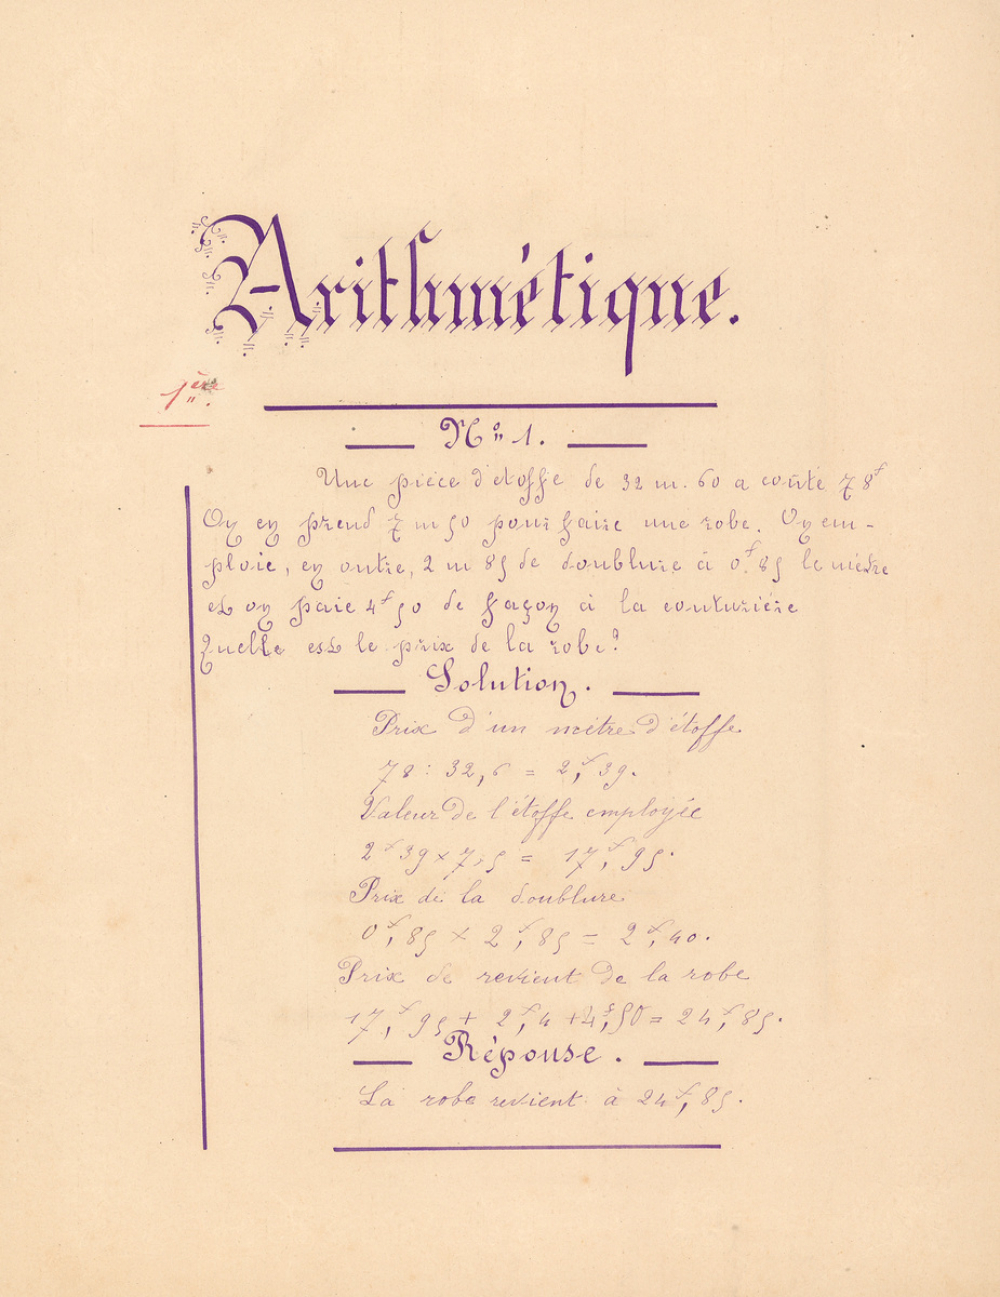 Arithmétique.
1ère
No 1.
Une pièce d'étoffe de 32 m. 60 a coûté 78f
On en prend 7 m 50 pour faire une robe. On em-
ploie, en outre, 2 m 85 de doublure à 0f.85 le mètre
et on paie 4f 50 de façon à la couturière
Quelle est le prix de la robe?
Solution.
Prix d'un mètre d'étoffe
78 : 32,6 = 2f,39.
Valeur de l'étoffe employée
2f 39 x 7,5 = 17f,95.
Prix de la doublure
0f,85 x 2f,85 = 2f,40.
Prix de revient de la robe
17,f 95 + 2f,4 + 4f,50 = 24f,85.
Réponse.
La robe revient à 24f,85.